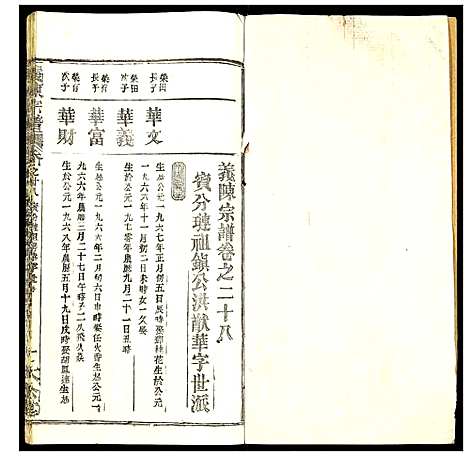 義陳宗譜卷之二十八
賓分璉祖鎮公洪猷華字世派
榮田
長子
華文
生於公元一九六七年正月初五日辰時娶
桂花生於公元
一九六六年十一月初二日未時女一久
榮田
次子
華義
生於公元一九七零年九月二十一日丑時
榮有
長子
華富
生於公元一九六六年二月初六日寅時娶任火香生於公元一
九六六年農曆三月二十七日午時子二久飛久
榮有
次子
華財
生於公元一九六八年農曆五月十九日戌時娶胡鳳蓮生於